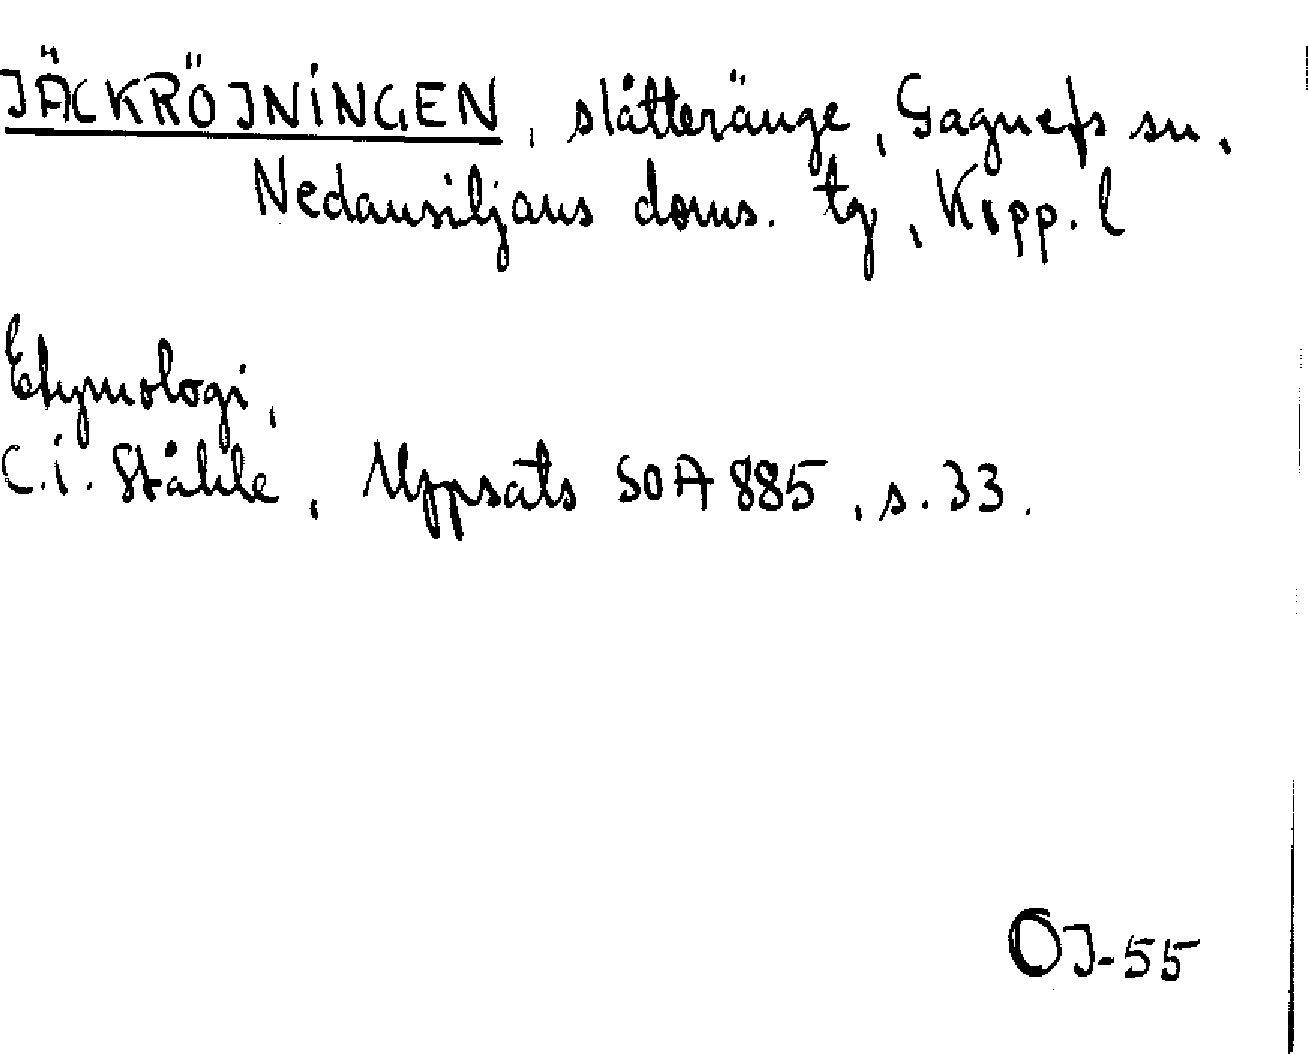 JÄCKRÖJNINGEN, slåtteränge, Gagnefs sn,
Nedansiljans doms. tg, Kopp. l
Etymologi,
C.I. Ståhle, Uppsats SOA 885, s. 33.
OJ-55